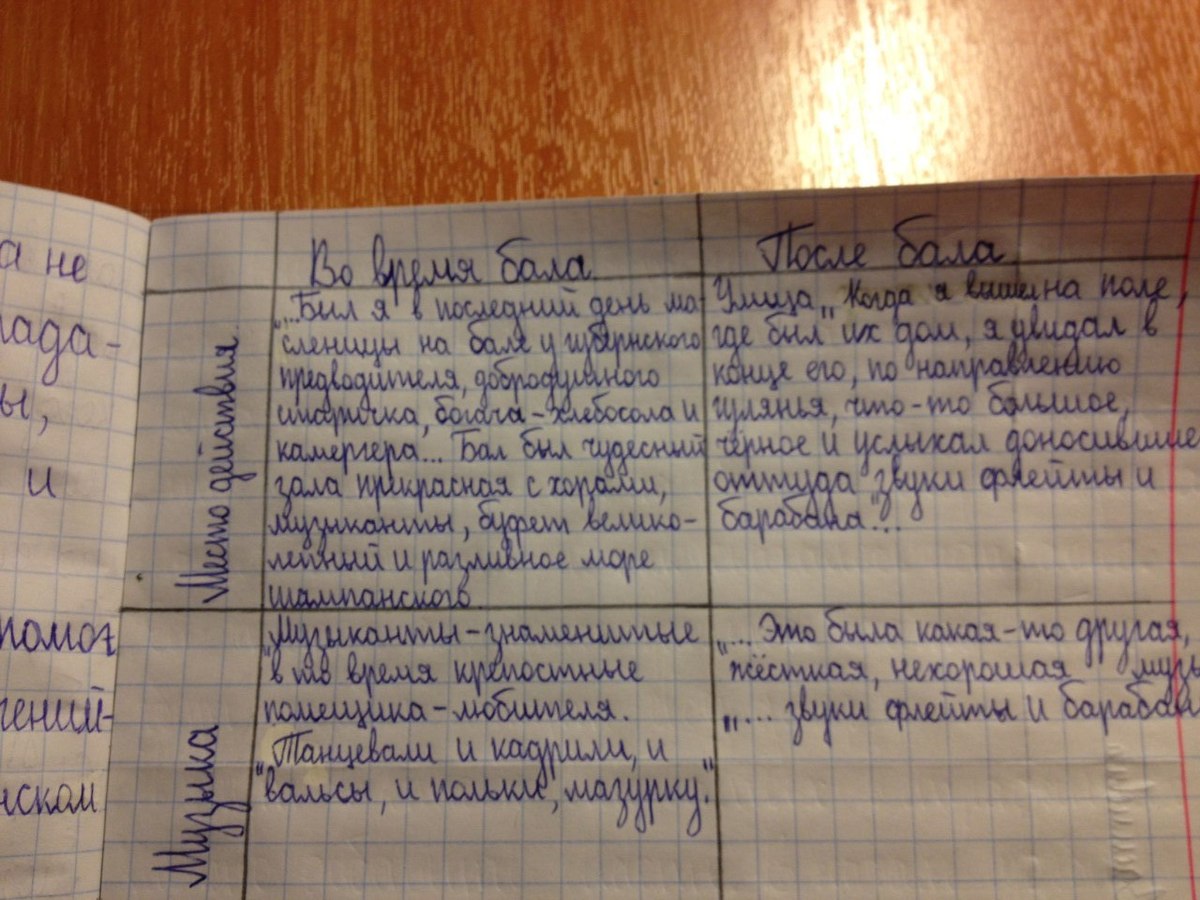 а не
ы,
и
помог
чений-
ском
Во время бала
После бала
Место действия
„...Был я в последний день ма-
сленицы на бале у губернского
предводителя, добродушного
старичка, богача-хлебосола и
камергера... Бал был чудесный
зала прекрасная с хорами,
музыканты, буфет велико-
лепный и разливное море
шампанского.
Улица „Когда я вышел на поле,
где был их дом, я увидал в
конце его, по направлению
гулянья, что-то большое,
чёрное и услыхал доносившие
оттуда звуки флейты и
барабана"...
Музыка
„Музыканты-знаменитые
в то время крепостные
помещика-любителя.
„Танцевали и кадрили, и
вальсы, и польки, мазурку."
„... Это была какая-то другая,
жёсткая, нехорошая музы
„... звуки флейты и бараба